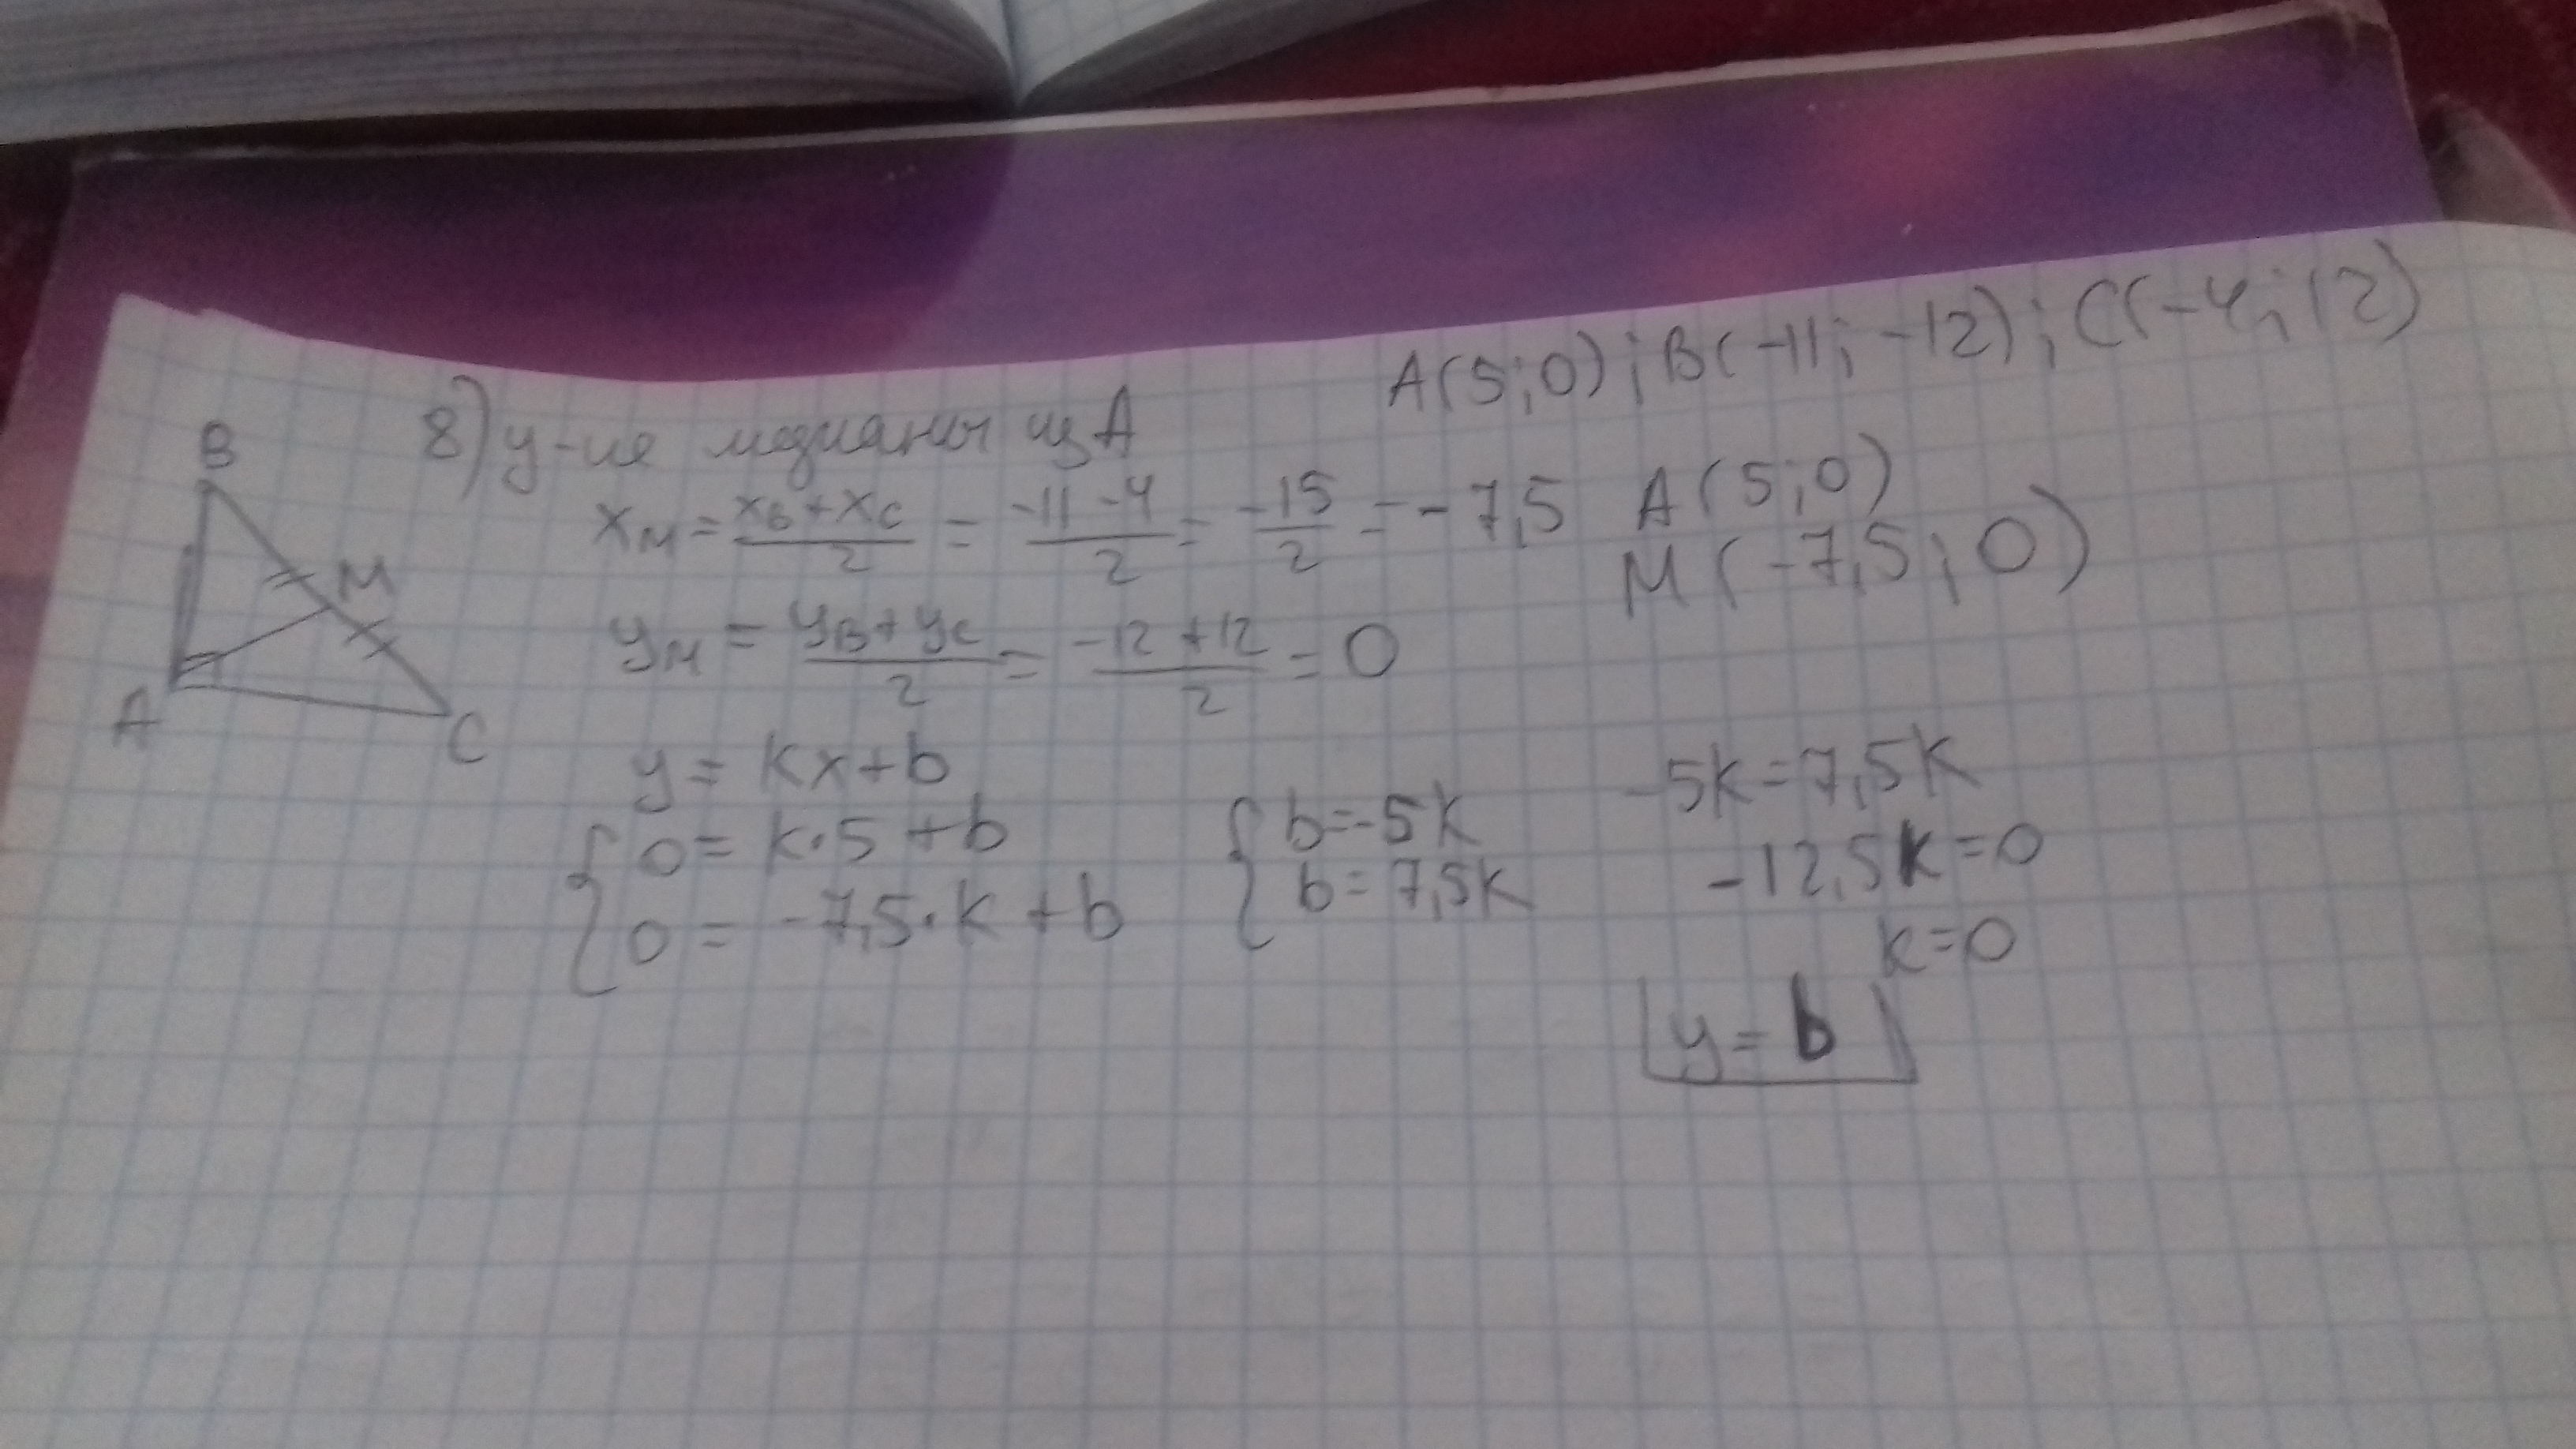 A(5;0); B(-11; -12); C(-4; 12)
8) у-ие медианы из A
B
M
A
C
x_M = (x_B + x_C)/2 = (-11 - 4)/2 = -15/2 = -7,5
A(5;0)
M(-7,5; 0)
y_M = (y_B + y_C)/2 = (-12 + 12)/2 = 0
y = kx + b
{ 0 = k·5 + b
{ 0 = -7,5·k + b
{ b = -5k
{ b = 7,5k
-5k = 7,5k
-12,5k = 0
k = 0
y = b